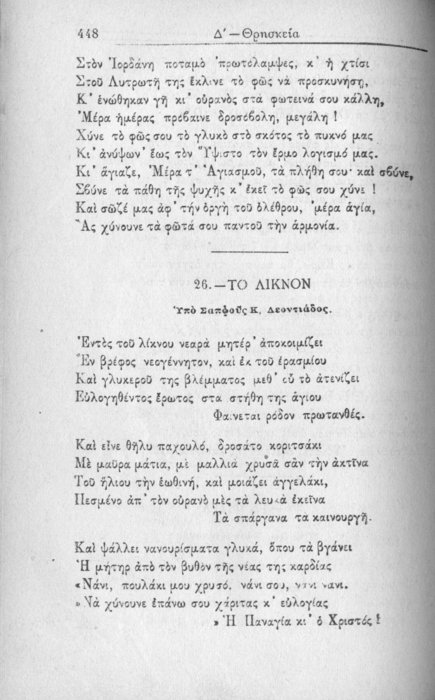 448 Δ΄ — Θρησκεία
Στὸν Ἰορδάνη ποταμὸ ᾿πρωτόλαμψες, κ᾿ ἡ χτίσι
Στοῦ Λυτρωτῆ της ἔκλινε τὸ φῶς νὰ προσκυνήσῃ,
Κ᾿ ἑνώθηκαν γῆ κι᾿ οὐρανὸς στὰ φωτεινά σου κάλλη,
Μέρα ἡμέρας πρόβαινε δροσόβολη, μεγάλη !
Χύνε τὸ φῶς σου τὸ γλυκὸ στὸ σκότος τὸ πυκνό μας
Κι᾿ ἀνύψων᾿ ἕως τὸν Ὕψιστο τὸν ἔρμο λογισμό μας.
Κι᾿ ἁγίαζε, Μέρα τ᾿ Ἁγιασμοῦ, τὰ πλήθη σου· καὶ σβύνε,
Σβύνε τὰ πάθη τῆς ψυχῆς κ᾿ ἐκεῖ τὸ φῶς σου χύνε !
Καὶ σῶζέ μας ἀφ᾿ τὴν ὀργὴ τοῦ ὀλέθρου, ᾿μέρα ἁγία,
Ἂς χύνουνε τὰ φῶτά σου παντοῦ τὴν ἁρμονία.
26.—ΤΟ ΛΙΚΝΟΝ
Ὑπὸ Σαπφοῦς Κ. Λεοντιάδος.
Ἐντὸς τοῦ λίκνου νεαρὰ μητέρ᾿ ἀποκοιμίζει
Ἓν βρέφος νεογέννητον, καὶ ἐκ τοῦ ἐρασμίου
Καὶ γλυκεροῦ της βλέμματος μεθ᾿ οὗ τὸ ἀτενίζει
Εὐλογηθέντος ἔρωτος στὰ στήθη της ἁγίου
Φαίνεται ῥόδον πρωτανθές.
Καὶ εἶνε θῆλυ παχουλό, δροσάτο κοριτσάκι
Μὲ μαῦρα μάτια, μὲ μαλλιὰ χρυσᾶ σὰν τὴν ἀκτῖνα
Τοῦ ἥλιου τὴν ἑωθινή, καὶ μοιάζει ἀγγελάκι,
Πεσμένο ἀπ᾿ τὸν οὐρανὸ μὲς τὰ λευκὰ ἐκεῖνα
Τὰ σπάργανα τα καινουργῆ.
Καὶ ψάλλει νανουρίσματα γλυκά, ὅπου τὰ βγάνει
Ἡ μήτηρ ἀπὸ τὸν βυθὸν τῆς νέας της καρδίας
«Νάνι, πουλάκι μου χρυσό, νάνι σου, νάνι νάνι.
» Νὰ χύνουνε ἐπάνω σου χάριτας κ᾿ εὐλογίας
» Ἡ Παναγία κι᾿ ὁ Χριστός !